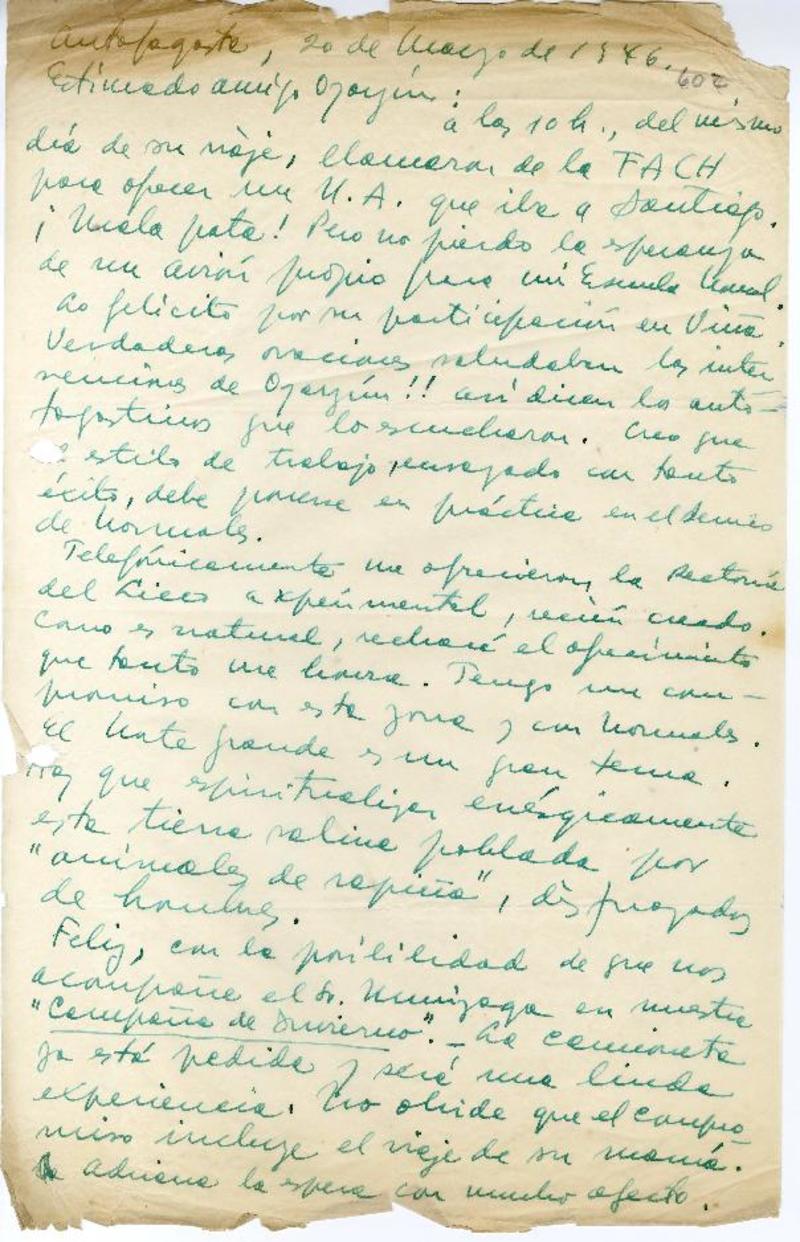 Antofagasta, 20 de Marzo de 1946.
602
Estimado amigo Oyarzún:
a las 10 h., del mismo
día de su viaje, llamaron de la FACH
para ofrecer un U.A. que iba a Santiago.
¡Mala pata! Pero no pierdo la esperanza
de un avión propio para mi Escuela Normal.
Lo felicito por su participación en Viña.
Verdaderas ovaciones saludaban las inter
venciones de Oyarzún!! así dicen los anto-
fagastinos que lo escucharon. Creo que
estilo de trabajo, ensayado con tanto
éxito, debe ponerse en práctica en el
de Normales.
Telefónicamente me ofrecieron la Rectoría
del Liceo experimental, recién creado.
Como es natural, rechacé el ofrecimiento
que tanto me honra. Tengo un com-
promiso con esta zona y con Normales.
El Norte grande es un gran tema.
Hay que espiritualizar enérgicamente
esta tierra salina poblada por
"animales de rapiña", disfrazados
de hombres.
Feliz, con la posibilidad de que nos
acompañe el Sr. Munizaga en nuestra
"Campaña de Invierno". - La camioneta
ya está pedida y será una linda
experiencia. No olvide que el compro-
miso incluye el viaje de su mamá.
Adriana la espera con mucho afecto.